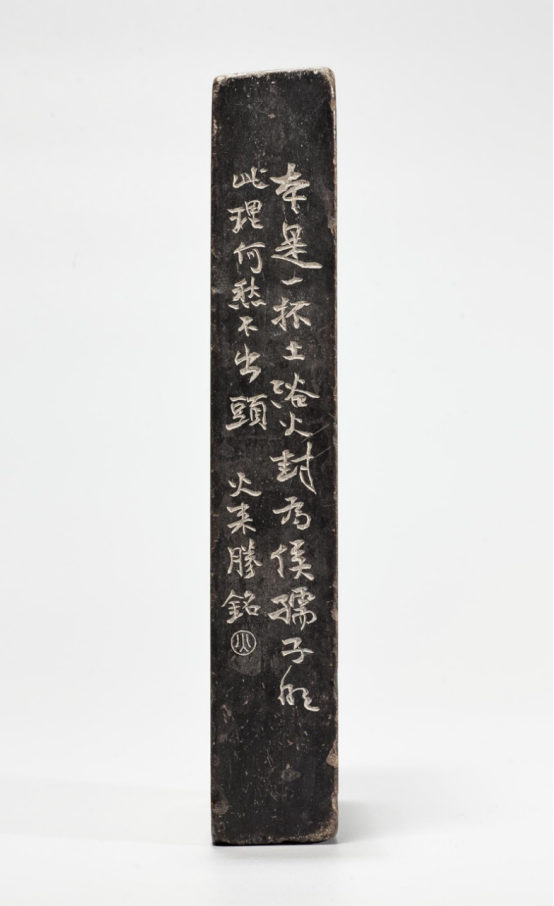 本是一抔土浴火封为侯孺子明
此理何愁不出頭 火来勝銘
火